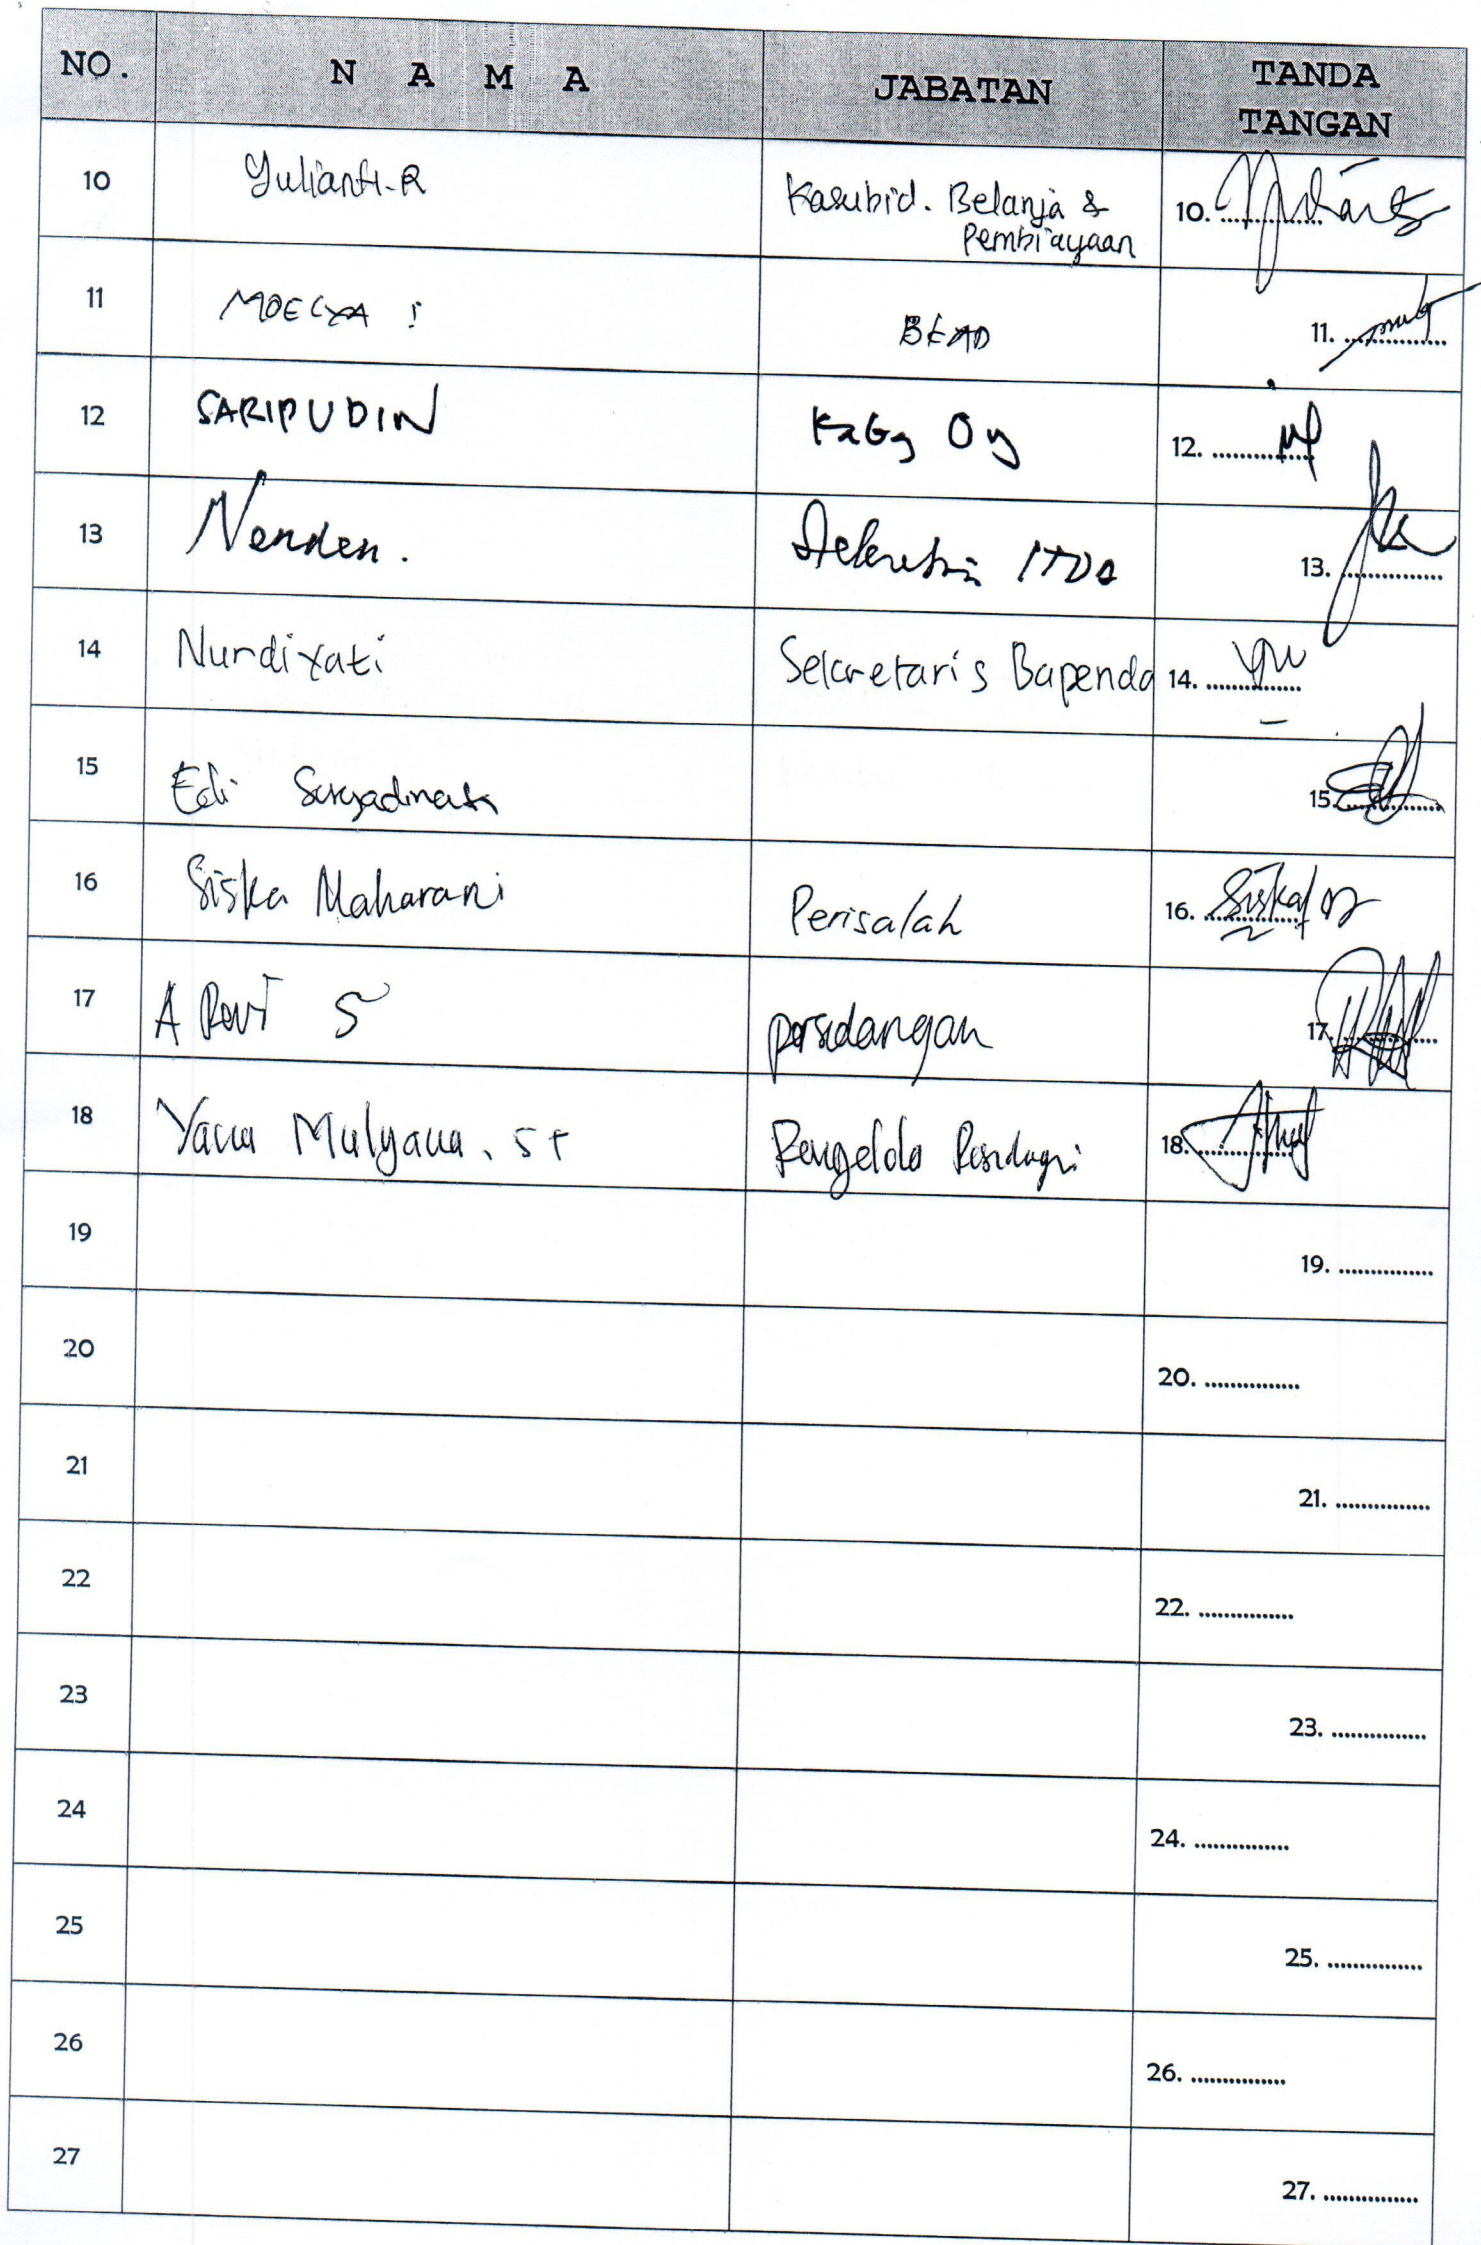 NO. N A M A JABATAN TANDA TANGAN
10 Yulianti.R Kasubid. Belanja & Pembiayaan 10. ...............
11 MOELYA BKAD 11. ...............
12 SARIPUDIN 12. ...............
13 Nenden. 13. ...............
14 Nurdiyati Sekretaris Bapenda 14. ...............
15 Edi Suryadinata 15. ...............
16 Siska Maharani Perisalah 16. ...............
17 A Revi S persidangan 17. ...............
18 Yana Mulyana, ST Pengelola 18. ...............
19 19. ...............
20 20. ...............
21 21. ...............
22 22. ...............
23 23. ...............
24 24. ...............
25 25. ...............
26 26. ...............
27 27. ...............